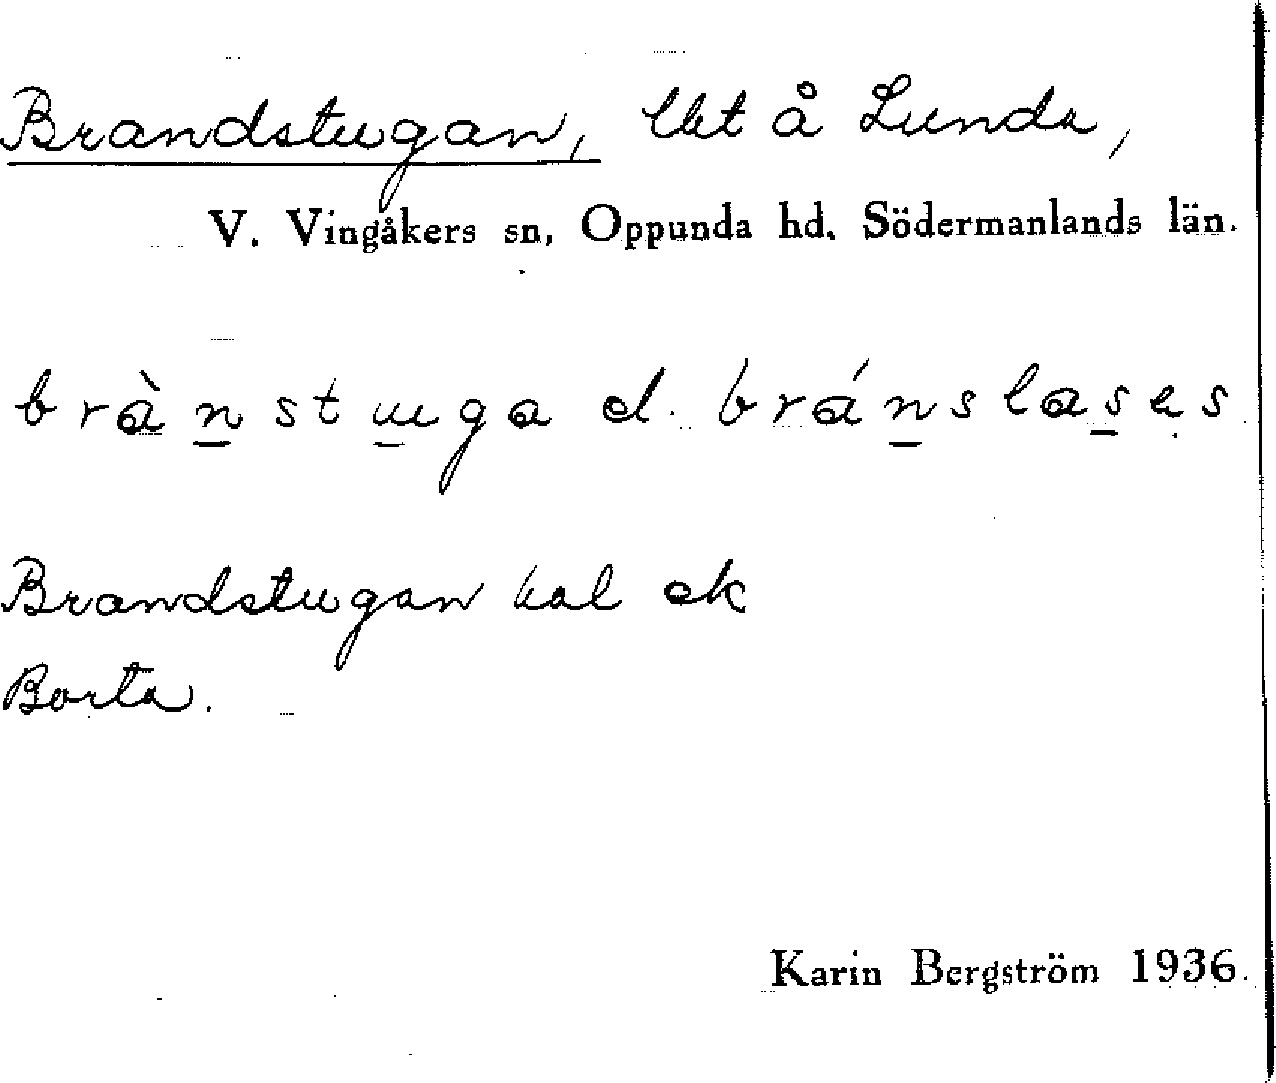 Brandstugan, lht å Lunda,
V. Vingåkers sn, Oppunda hd. Södermanlands län.
brànstuga el. bránslases
Brandstugan kal ok
Borta.
Karin Bergström 1936.